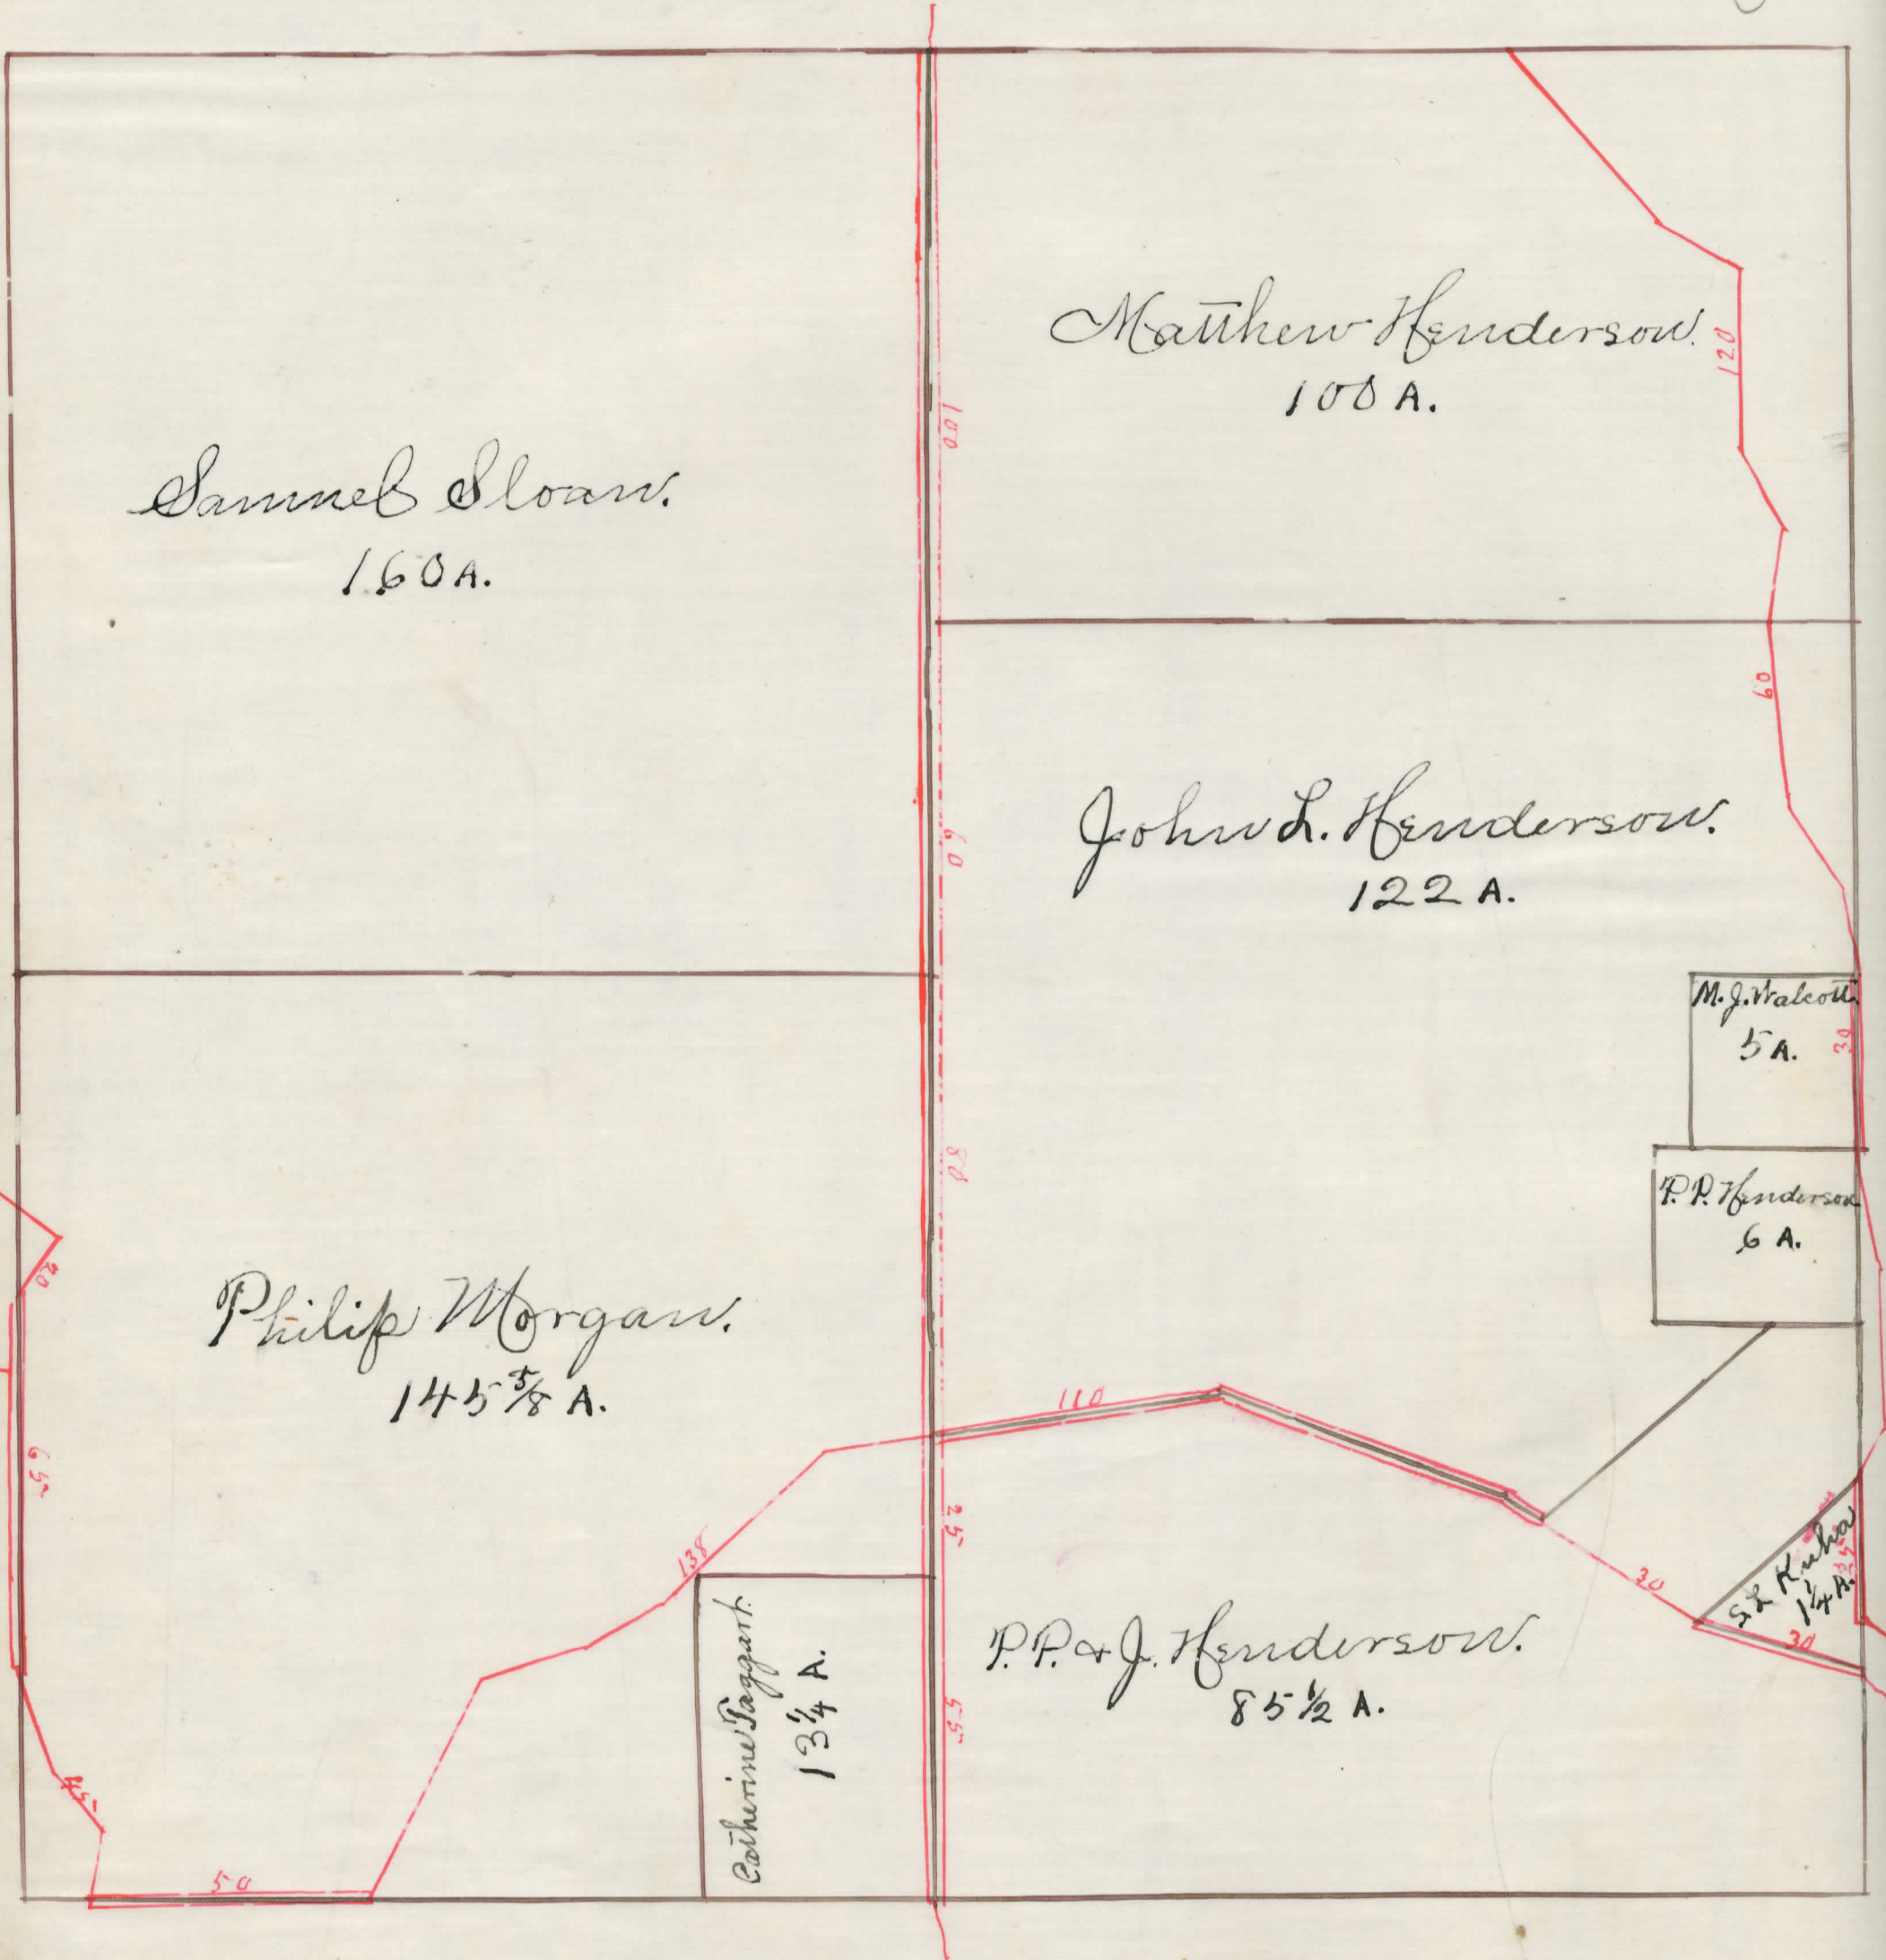 Samuel Sloan.
160 A.
Matthew Henderson.
100 A.
120
100
60
John L. Henderson.
122 A.
60
M. J. Walcott.
5 A.
30
80
P. P. Henderson
6 A.
20
Philip Morgan.
145 5/8 A.
65
110
138
25
30
S L Kuha
1 1/4 A.
35
30
Catherine Taggart.
13 1/4 A.
P. P. & J. Henderson.
85 1/2 A.
55
45
50